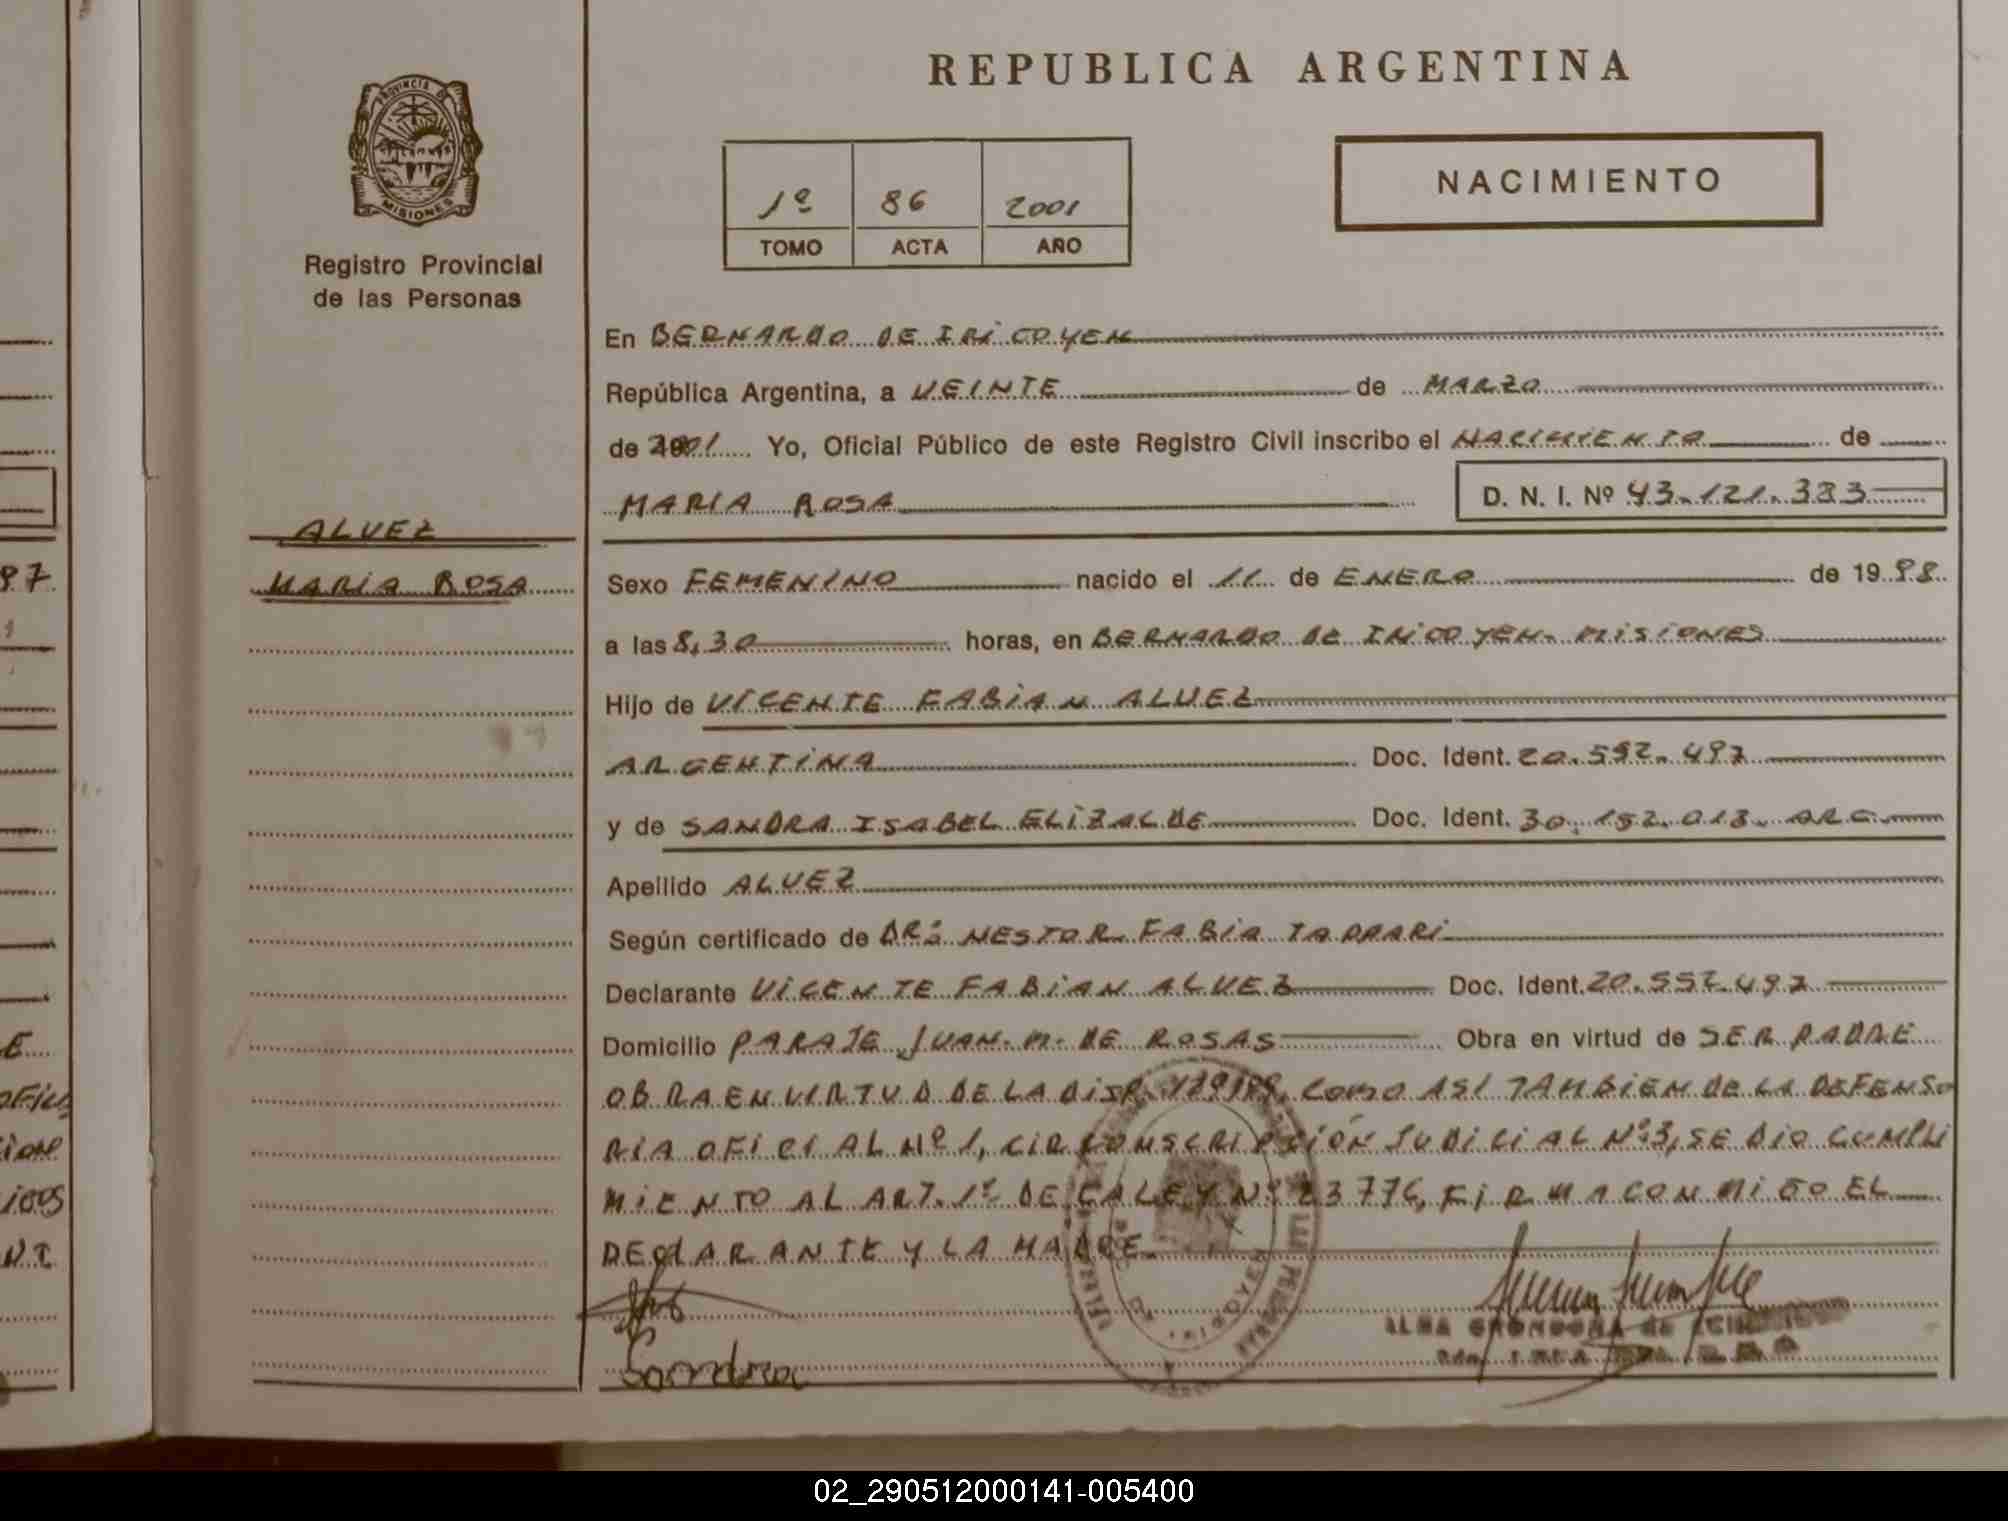 REPUBLICA ARGENTINA
PROVINCIA DE
MISIONES
Registro Provincial
de las Personas
1º 86 2001
TOMO ACTA AÑO
NACIMIENTO
En BERNARDO DE IRIGOYEN
República Argentina, a VEINTE de MARZO
de 2001 Yo, Oficial Público de este Registro Civil inscribo el NACIMIENTO de
MARIA ROSA D. N. I. Nº 43.121.383
ALVEZ
MARIA ROSA
Sexo FEMENINO nacido el 11 de ENERO de 1998
a las 8,30 horas, en BERNARDO DE IRIGOYEN - MISIONES
Hijo de VICENTE FABIAN ALVEZ
ARGENTINA Doc. Ident. 20.552.497
y de SANDRA ISABEL ELIZALDE Doc. Ident. 30.152.013 - ARG.
Apellido ALVEZ
Según certificado de DR: NESTOR FABIA
Declarante VICENTE FABIAN ALVEZ Doc. Ident. 20.552.497
Domicilio PARAJE JUAN M. DE ROSAS Obra en virtud de SER PADRE
OBRA EN VIRTUD DE LA DISP. 129/99, COMO ASI TAMBIEN DE LA DEFENSO
RIA OFICIAL Nº 1, CIRCONSCRIPCIÓN JUDICIAL Nº 3, SE DIO CUMPLI
MIENTO AL ART. 1º DE LA LEY Nº 23776, FIRMA CONMIGO EL
DECLARANTE Y LA MADRE
Sandra
ALBA GRONDONA de
02_290512000141-005400